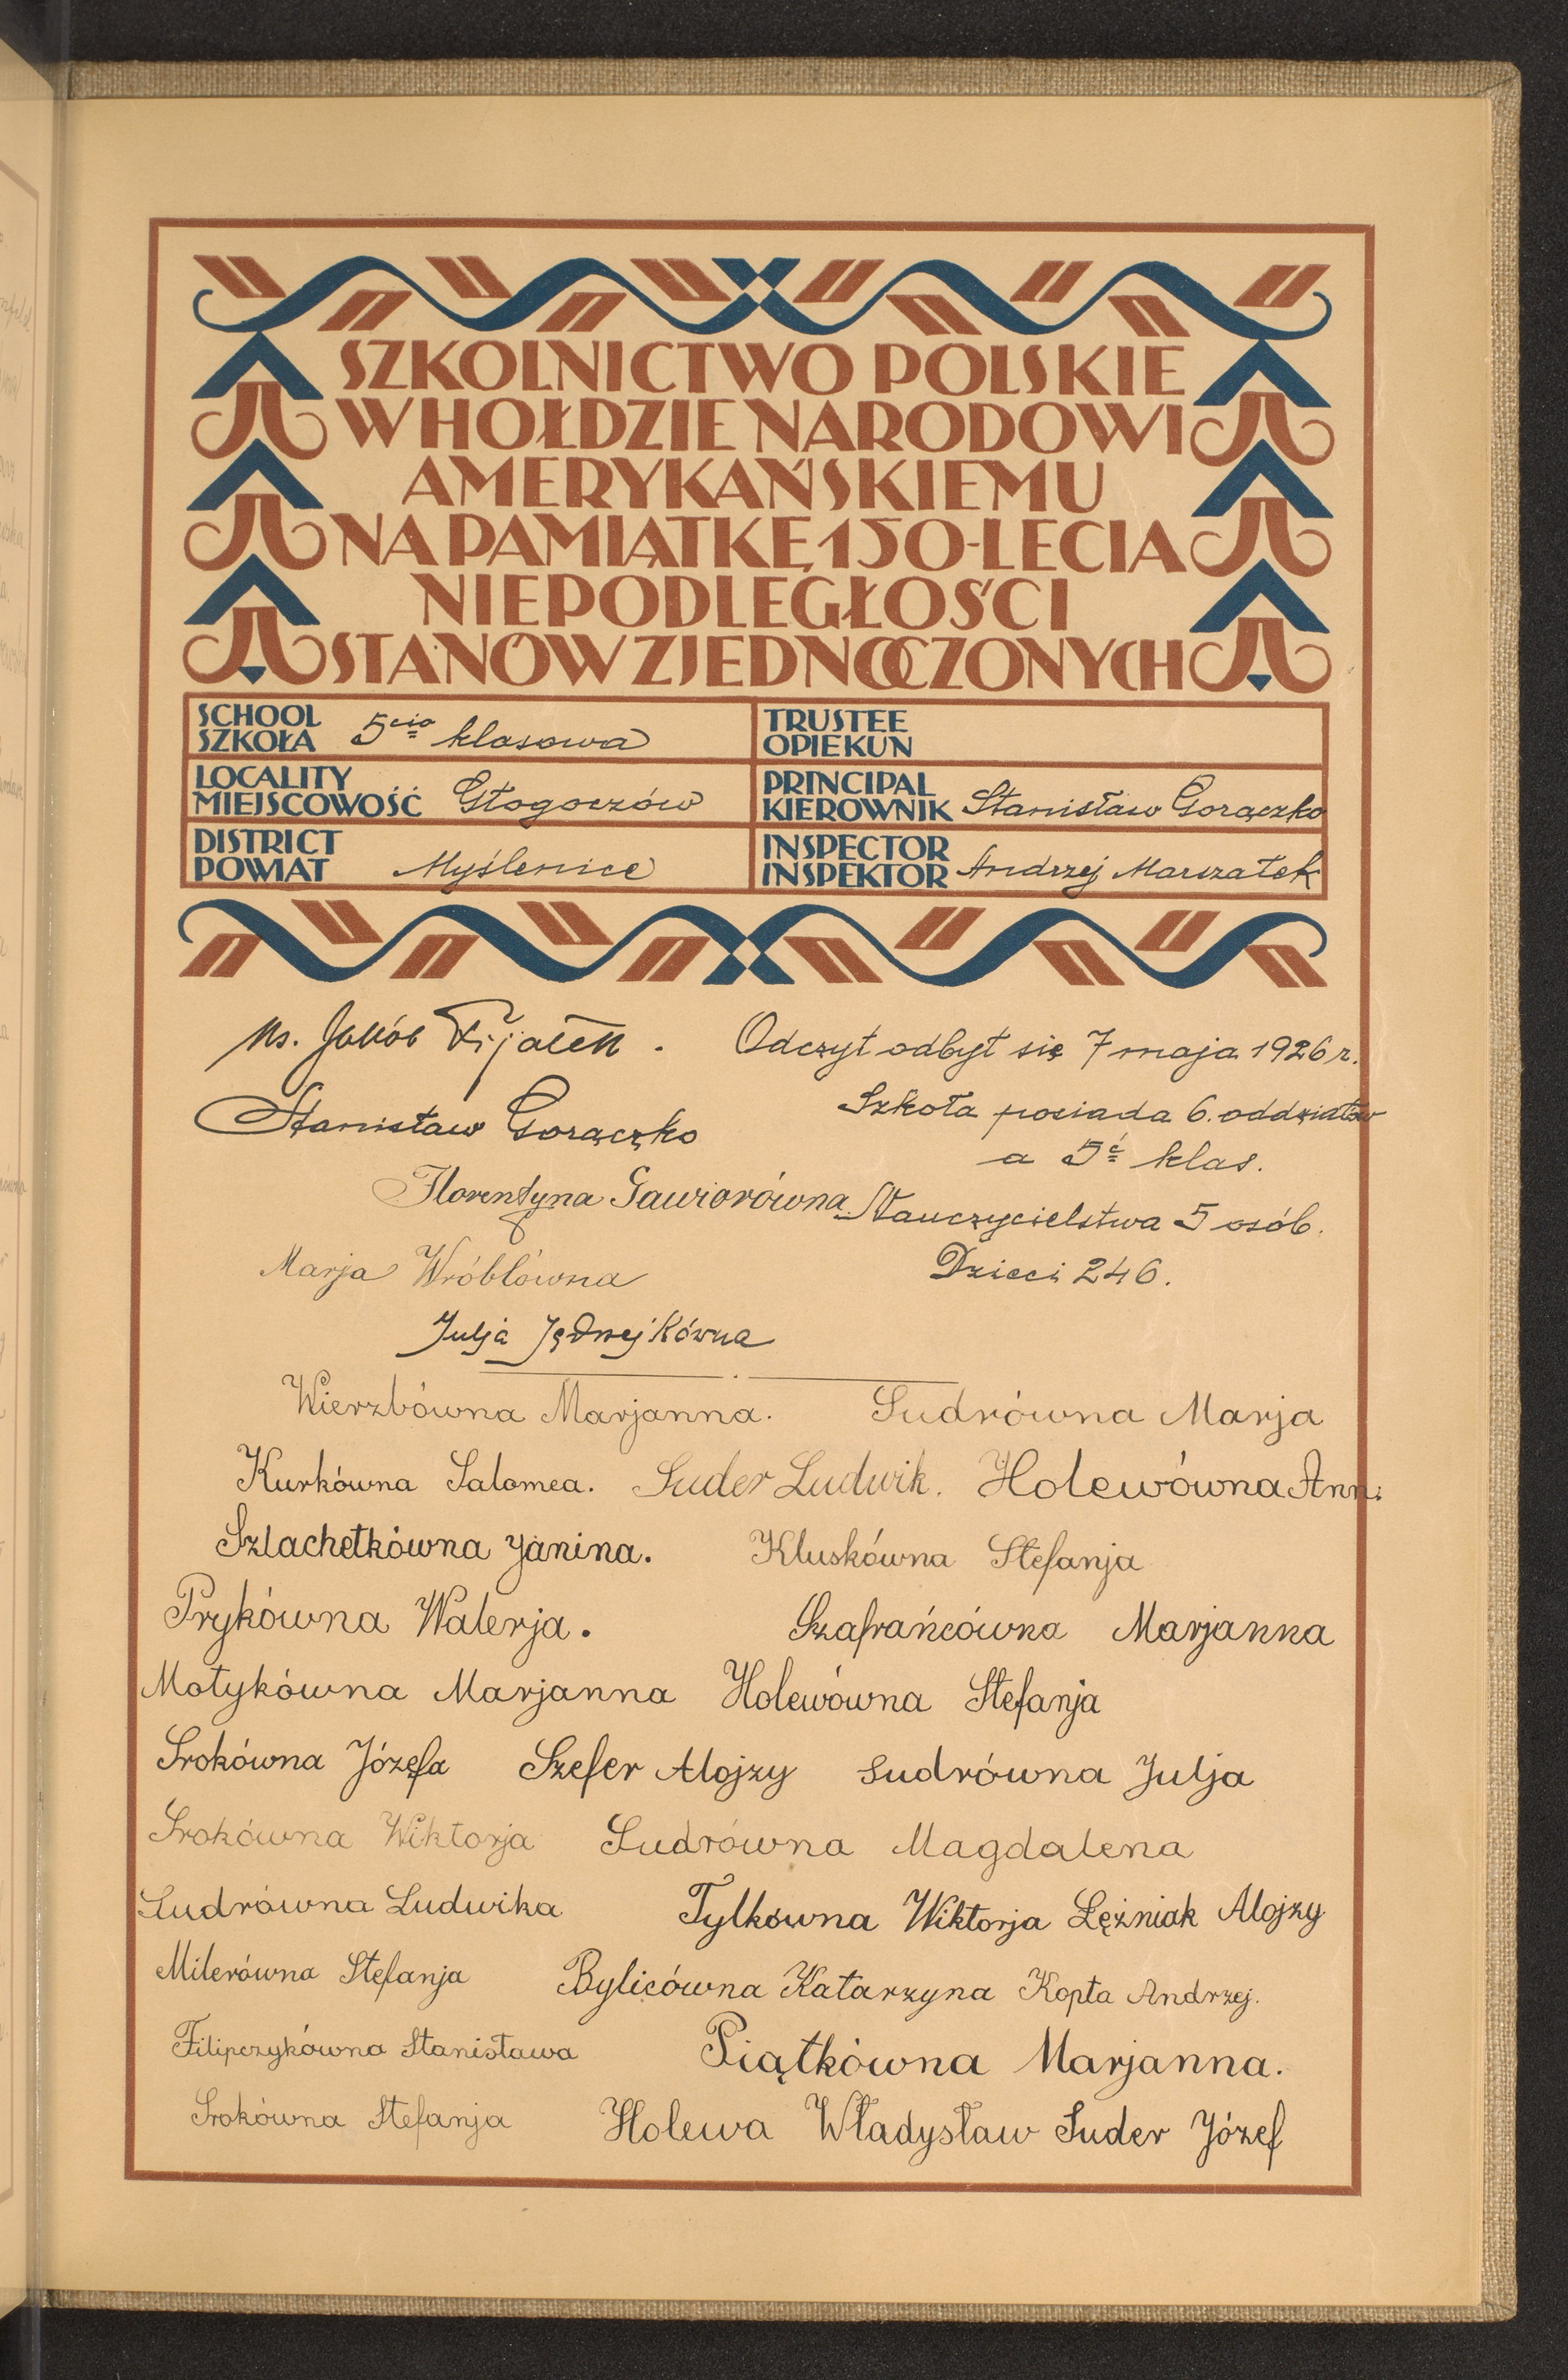 SZKOLNICTWO POLSKIE
W HOŁDZIE NARODOWI
AMERYKAŃSKIEMU
NA PAMIĄTKĘ 150-LECIA
NIEPODLEGŁOŚCI
STANÓW ZJEDNOCZONYCH
SCHOOL
SZKOŁA 5cio klasowa
TRUSTEE
OPIEKUN
LOCALITY
MIEJSCOWOŚĆ Głogoczów
PRINCIPAL
KIEROWNIK Stanisław Gorączko
DISTRICT
POWIAT Myślenice
INSPECTOR
INSPEKTOR Andrzej Marszałek
Ks. Jakób Fijałek. Odczyt odbył się 7 maja 1926 r.
Stanisław Gorączko Szkoła posiada 6. oddziałów
a 5ć klas.
Florentyna Gawiorówna Nauczycielstwa 5 osób.
Marja Wróblówna Dzieci 246.
Julja
Wierzbówna Marjanna. Sudrówna Marja
Kurkówna Salomea. Suder Ludwik. Holewówna Ann.
Szlachetkówna Janina. Kluskówna Stefanja
Prykówna Walerja. Szafrańcówna Marjanna
Motykówna Marjanna Holewówna Stefanja
Srokówna Józefa Szefer Alojzy Sudrówna Julja
Srokówna Wiktorja Sudrówna Magdalena
Sudrówna Ludwika Tylkówna Wiktorja Lęźniak Alojzy
Milerówna Stefanja Bylicówna Katarzyna Kopta Andrzej.
Filipczykówna Stanisława Piątkówna Marjanna.
Srokówna Stefanja Holewa Władysław Suder Józef